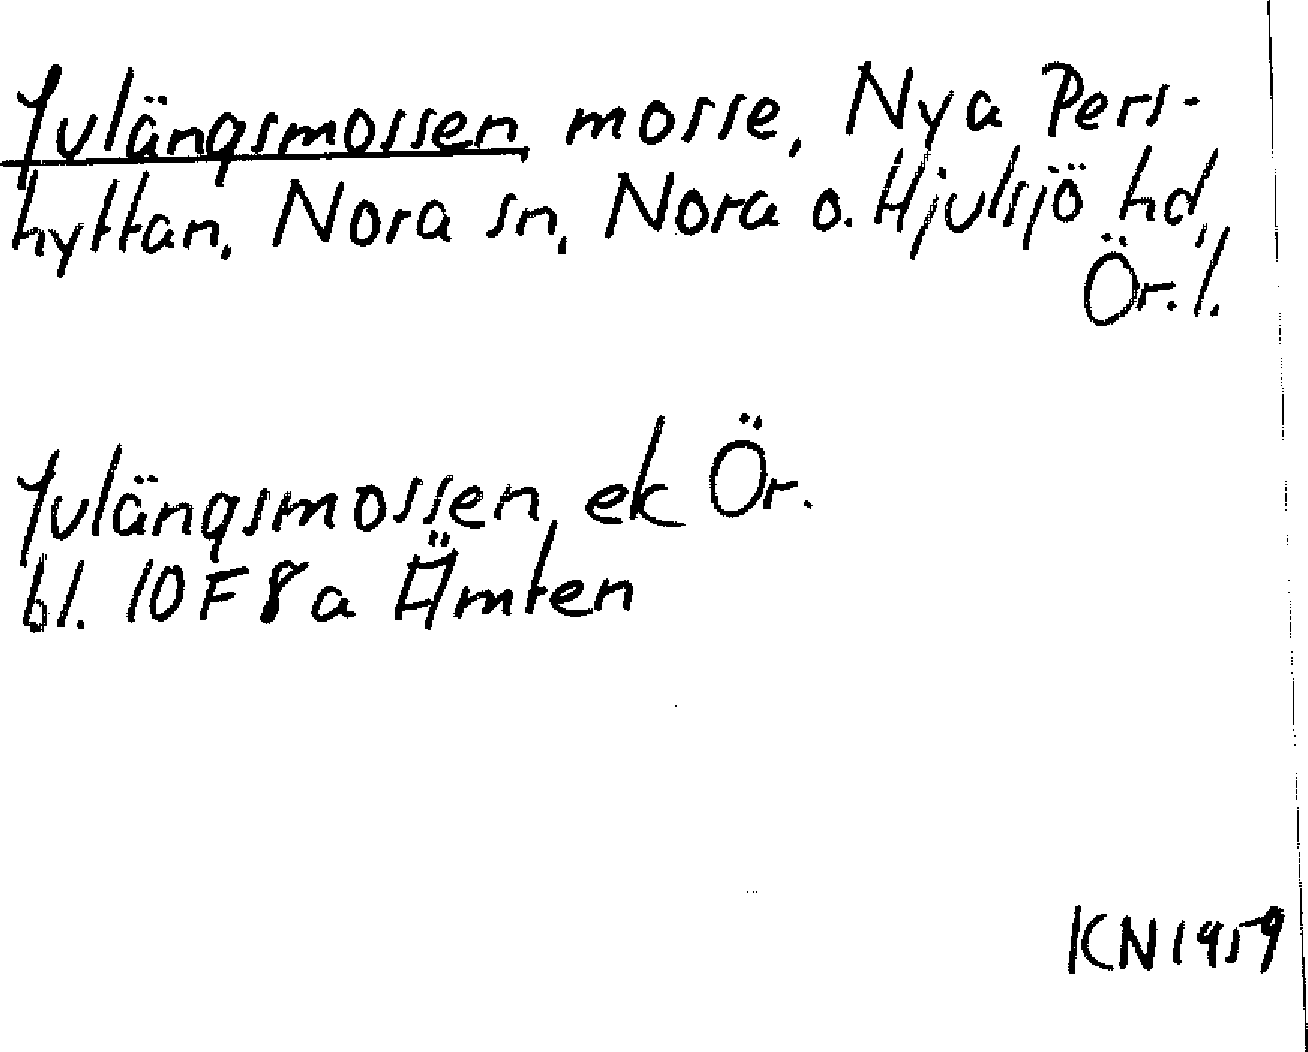 Julängsmossen mosse, Nya Pers-
hyttan, Nora sn, Nora o. Hjulsjö hd,
Ör. l.
Julängsmossen, ek Ör.
bl. 10 F 8 a Ämten
KN 1959